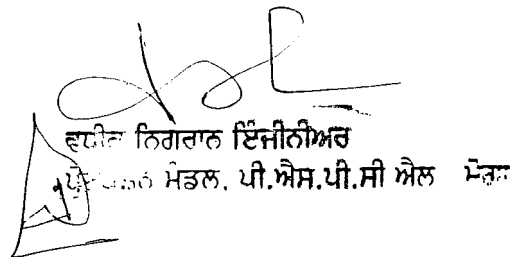 ਵਧੀਕ ਨਿਗਰਾਨ ਇੰਜੀਨੀਅਰ
ਮੰਡਲ, ਪੀ.ਐਸ.ਪੀ.ਸੀ ਐਲ